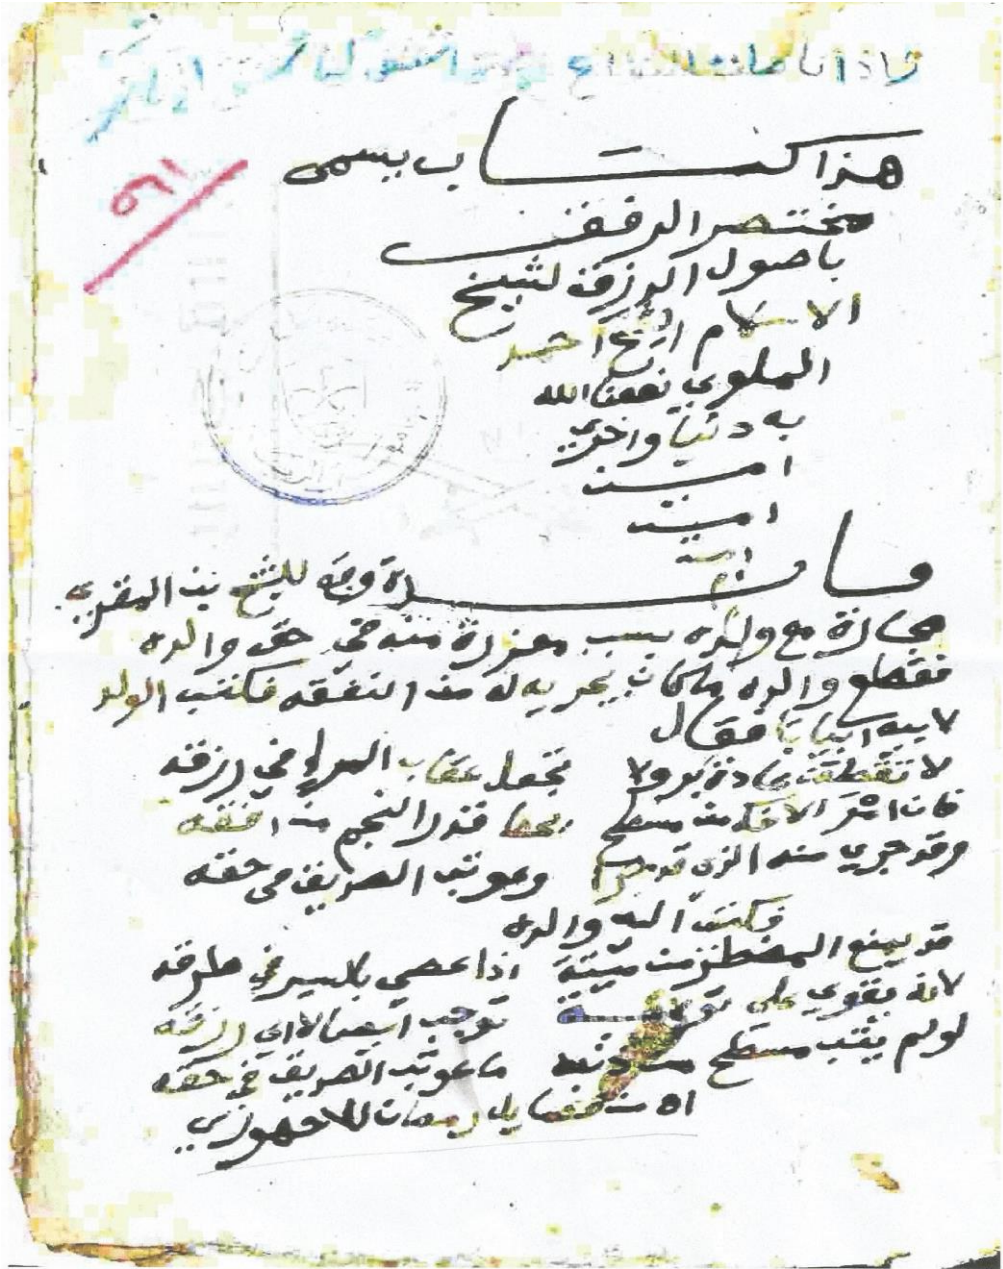 هذا كتاب يسمى
مختصر
باصول لشيخ
الاسلام الشيخ احمد
الملوي نفعنا الله
به دنيا واخرى
امين
امين
امين
فائدة وجد للشيخ بن المقري
مع ولده بسبب منه في حق والده
فقطع والده ما كان يجريه له من النفقه فكتب الولد
لابيه ابياتا فقال
لا تقطعن عادة بر ولا تجعل عقاب المرء في رزقه
فان امر الافك من مسطح يحط قدر النجم من افقه
وقد جرى منه الذي قد جرى وعوتب الصديق في حقه
فكتب اليه والده
قد يمنع المضطر من ميتة اذا عصى بالسير في طرقه
لانه يقوى على توبة توجب ايصالا الى رزقه
لو لم يتب مسطح من ذنبه ما عوتب الصديق في حقه
اه من فضايل رمضان للاجهوري